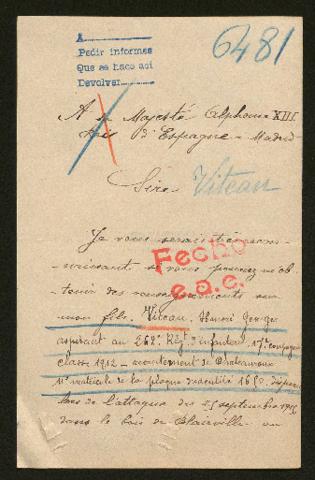 A
Pedir informes
Que se hace aqi
Devolver
6481
A sa Majesté Alphonse XIII
Roi d'Espagne - Madrid
Sire
Viteau
Je vous serais très recon-
naissant si vous pouviez m'ob
tenir des renseignements sur
mon fils. Viteau, Honoré George
Fecho
e.a.e.
aspirant au 268e Régt d'infanterie, 17e compagnie
classe 1912 - recrutement de Chateauroux
n° matricule de la plaque d'identité 1650. disparu
lors de l'attaque du 25 septembre 1915
dans le bois de Blairville ou